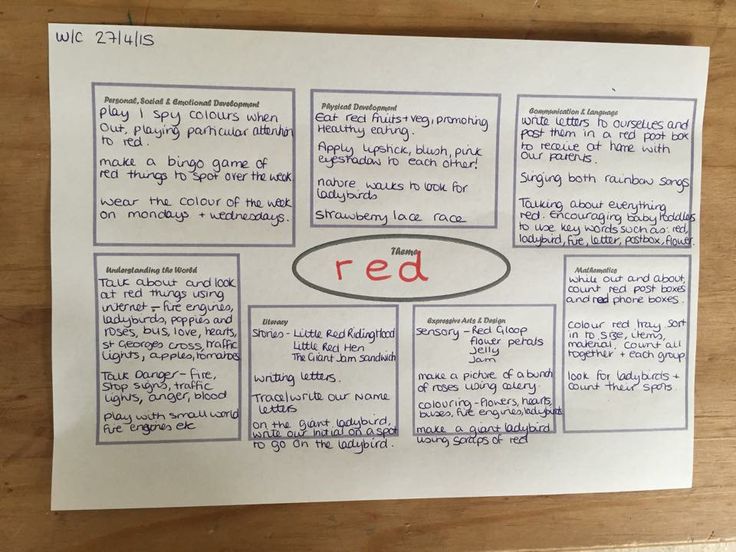 W/C 27/4/15
Personal, Social & Emotional Development
Play I spy colours when
out, playing particular attention
to red.
make a bingo game of
red things to spot over the week
wear the colour of the week
on mondays + wednesdays.
Physical Development
Eat red fruits+veg, promoting
Healthy eating.
Apply lipstick, blush, pink
eyeshadow to each other!
nature walks to look for
ladybirds
strawberry lace race
Communication & Language
write letters to ourselves and
post them in a red post box
to receive at home with
our parents.
Singing both rainbow songs
Talking about everything
red. Encouraging baby/toddlers
to use key words such as: red,
ladybird, fire, letter, postbox, flower.
Theme
red
Understanding the World
Talk about and look
at red things using
internet - fire engines,
ladybirds, poppies and
roses, bus, love, hearts,
St Georges cross, traffic
lights, apples, tomatoes
Talk Danger - fire,
stop signs, traffic
lights, anger, blood
Play with small world
fire engines etc
Literacy
Stories - Little Red Riding Hood
Little Red Hen
The Giant Jam Sandwich
writing letters.
Trace/write our name
letters
on the giant ladybird,
write our initial on a spot
to go on the ladybird.
Expressive Arts & Design
sensory - Red Gloop
flower petals
Jelly
Jam
make a picture of a bunch
of roses using celery.
colouring - flowers, hearts,
buses, fire engines, ladybirds
make a giant ladybird
using scraps of red
Mathematics
while out and about,
count red post boxes
and red phone boxes.
colour red tray sort
in to size, items,
material. Count all
together + each group
look for ladybirds +
count their spots.